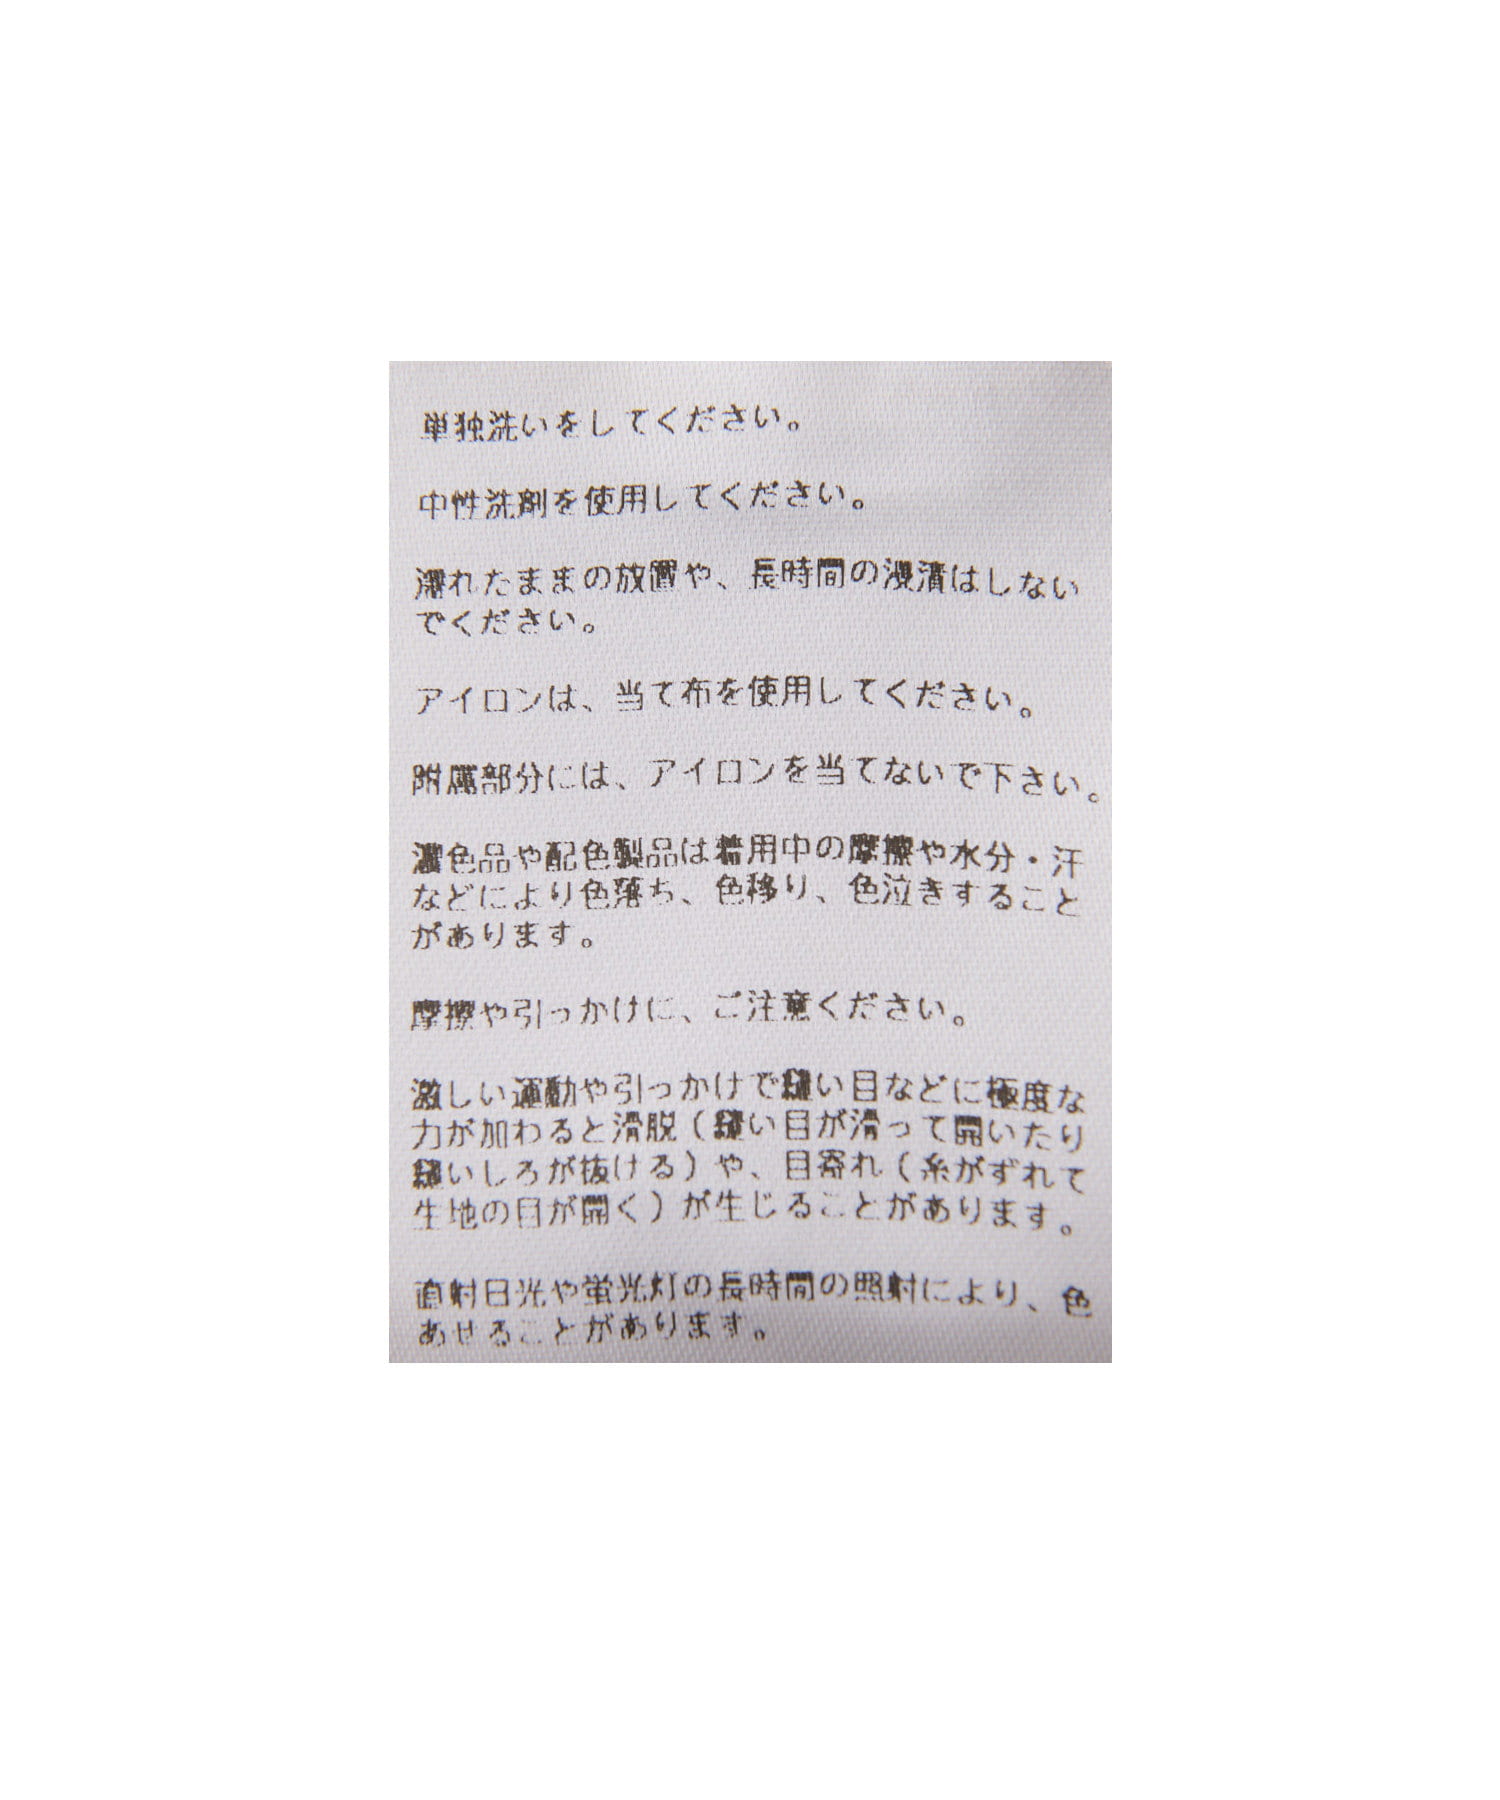 単独洗いをしてください。
中性洗剤を使用してください。
濡れたままの放置や、長時間の浸漬はしない
でください。
アイロンは、当て布を使用してください。
附属部分には、アイロンを当てないで下さい。
濃色品や配色製品は着用中の摩擦や水分・汗
などにより色落ち、色移り、色泣きすること
があります。
摩擦や引っかけに、ご注意ください。
激しい運動や引っかけで縫い目などに極度な
力が加わると滑脱（縫い目が滑って開いたり
縫いしろが抜ける）や、目寄れ（糸がずれて
生地の目が開く）が生じることがあります。
直射日光や蛍光灯の長時間の照射により、色
あせることがあります。